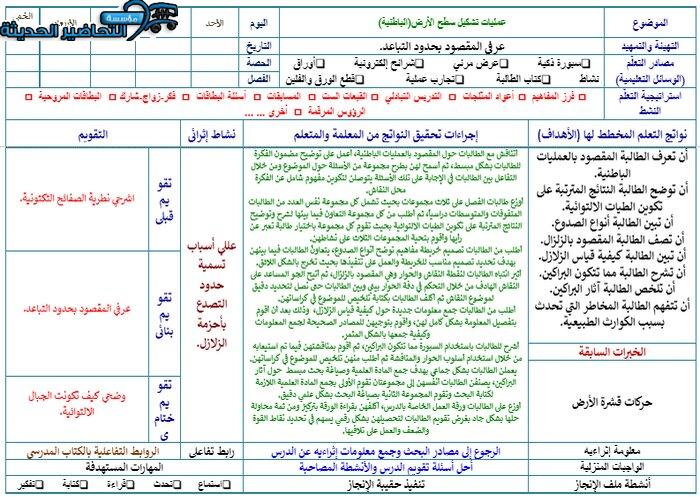 مؤسسة
التحاضير الحديثة
الموضوع
عمليات تشكيل سطح الأرض(الباطنية)
اليوم
الأحد
التهيئة والتمهيد
عرفي المقصود بحدود التباعد.
التاريخ
مصادر التعلم
(الوسائل التعليمية)
□ سبورة ذكية □ عرض مرئي □ شرائح إلكترونية □ أوراق
نشاط □ كتاب الطالبة □ تجارب عملية □ قطع الورق والفلين
الحصة
الفصل
استراتيجية التعلم
النشط
□ فرز المفاهيم □ أعواد المثلجات □ التدريس التبادلي □ القبعات الست □ المسابقات □ أسئلة البطاقات □ فكر-زواج-شارك □ البطاقات المروحية
□ الرؤوس المرقمة □ أخرى ... ...
نواتج التعلم المخطط لها (الأهداف)
إجراءات تحقيق النواتج من المعلمة والمتعلم
نشاط إثرائي
التقويم
أن تعرف الطالبة المقصود بالعمليات
الباطنية.
أن توضح الطالبة النتائج المترتبة على
تكوين الطيات الالتوائية.
أن تبين الطالبة أنواع الصدوع.
أن تصف الطالبة المقصود بالزلزال.
أن تبين الطالبة كيفية قياس الزلازل.
أن تشرح الطالبة مما تتكون البراكين.
أن تلخص الطالبة آثار البراكين.
أن تتفهم الطالبة المخاطر التي تحدث
بسبب الكوارث الطبيعية.
الخبرات السابقة
حركات قشرة الأرض
أتناقش مع الطالبات حول المقصود بالعمليات الباطنية، أعمل على توضيح مضمون الفكرة
للطالبات بشكل مبسط، ثم أسمح لهن بطرح مجموعة من الأسئلة حول الموضوع ومن خلال
التفاعل بين الطالبات في الإجابة على تلك الأسئلة يتوصلن لتكوين مفهوم شامل عن الفكرة
محل النقاش.
أوزع طالبات الفصل على ثلاث مجموعات بحيث تشمل كل مجموعة نفس العدد من الطالبات
المتفوقات والمتوسطات دراسياً، ثم أطلب من كل مجموعة التعاون فيما بينها لشرح وتوضيح
النتائج المترتبة على تكوين الطيات الالتوائية بحيث تقوم كل مجموعة باختيار طالبة تعبر عن
رأيها وأقوم بتحية المجموعات الثلاث على نشاطهن.
أطلب من الطالبات تصميم خريطة مفاهيم توضح أنواع الصدوع، يتعاون الطالبات فيما بينهن
بهدف تحديد تصميم مناسب للخريطة والعمل على تنفيذها بحيث تخرج بالشكل اللائق.
أثير انتباه الطالبات لنقطة النقاش والحوار وهي المقصود بالزلزال، ثم أتيح الجو المساعد على
النقاش الهادف من خلال التحكم في دفة الحوار بيني وبين الطالبات حتى نصل لتحديد دقيق
لموضوع النقاش ثم أكلف الطالبات بكتابة تلخيص للموضوع في كراساتهن.
أطلب من الطالبات جمع معلومات جديدة حول كيفية قياس الزلازل، وذلك بعد أن أقوم
بتفصيل المعلومة بشكل كامل لهن، وأقوم بتوجيههن للمصادر الصحيحة لجمع المعلومات
وكيفية جمعها بالشكل المثمر.
أشرح للطالبات باستخدام السبورة مما تتكون البراكين، ثم أقوم بمناقشتهن فيما تم استيعابه
من خلال استخدام أسلوب الحوار والمناقشة ثم أطلب منهن تلخيص للموضوع في كراساتهن.
يعملن الطالبات بشكل جماعي بهدف جمع المادة العلمية وصياغة بحث مبسط حول آثار
البراكين، يصنفن الطالبات أنفسهن إلى مجموعتان تقوم الأولى بجمع المادة العلمية اللازمة
لكتابة البحث وتقوم المجموعة الثانية بصياغة البحث بشكل علمي دقيق.
أوزع على الطالبات ورقة العمل الخاصة بالدرس، أكلفهن بقراءة الورقة بتركيز ومن ثمة محاولة
حلها بشكل جاد بغرض تقويم الطالبات لتحصيلهن بشكل رقمي يسهم في تحديد نقاط القوة
والضعف والعمل على تلافيها.
عللي أسباب
تسمية
حدود
التصدع
بأحزمة
الزلازل.
تقو
يم
قبلي
اشرحي نظرية الصفائح التكتونية.
تقو
يم
بنائي
عرفي المقصود بحدود التباعد.
تقو
يم
ختام
ي
وضحي كيف تكونت الجبال
الالتوائية.
معلومة إثراءية
الرجوع إلى مصادر البحث وجمع معلومات إثراءيه عن الدرس
رابط تفاعلي
الروابط التفاعلية بالكتاب المدرسي
الواجبات المنزلية
أحل أسئلة تقويم الدرس والأنشطة المصاحبة
المهارات المستهدفة
أنشطة ملف الإنجاز
تنفيذ حقيبة الإنجاز
□ استماع □ تحدث □ قراءة □ كتابة □ تفكير